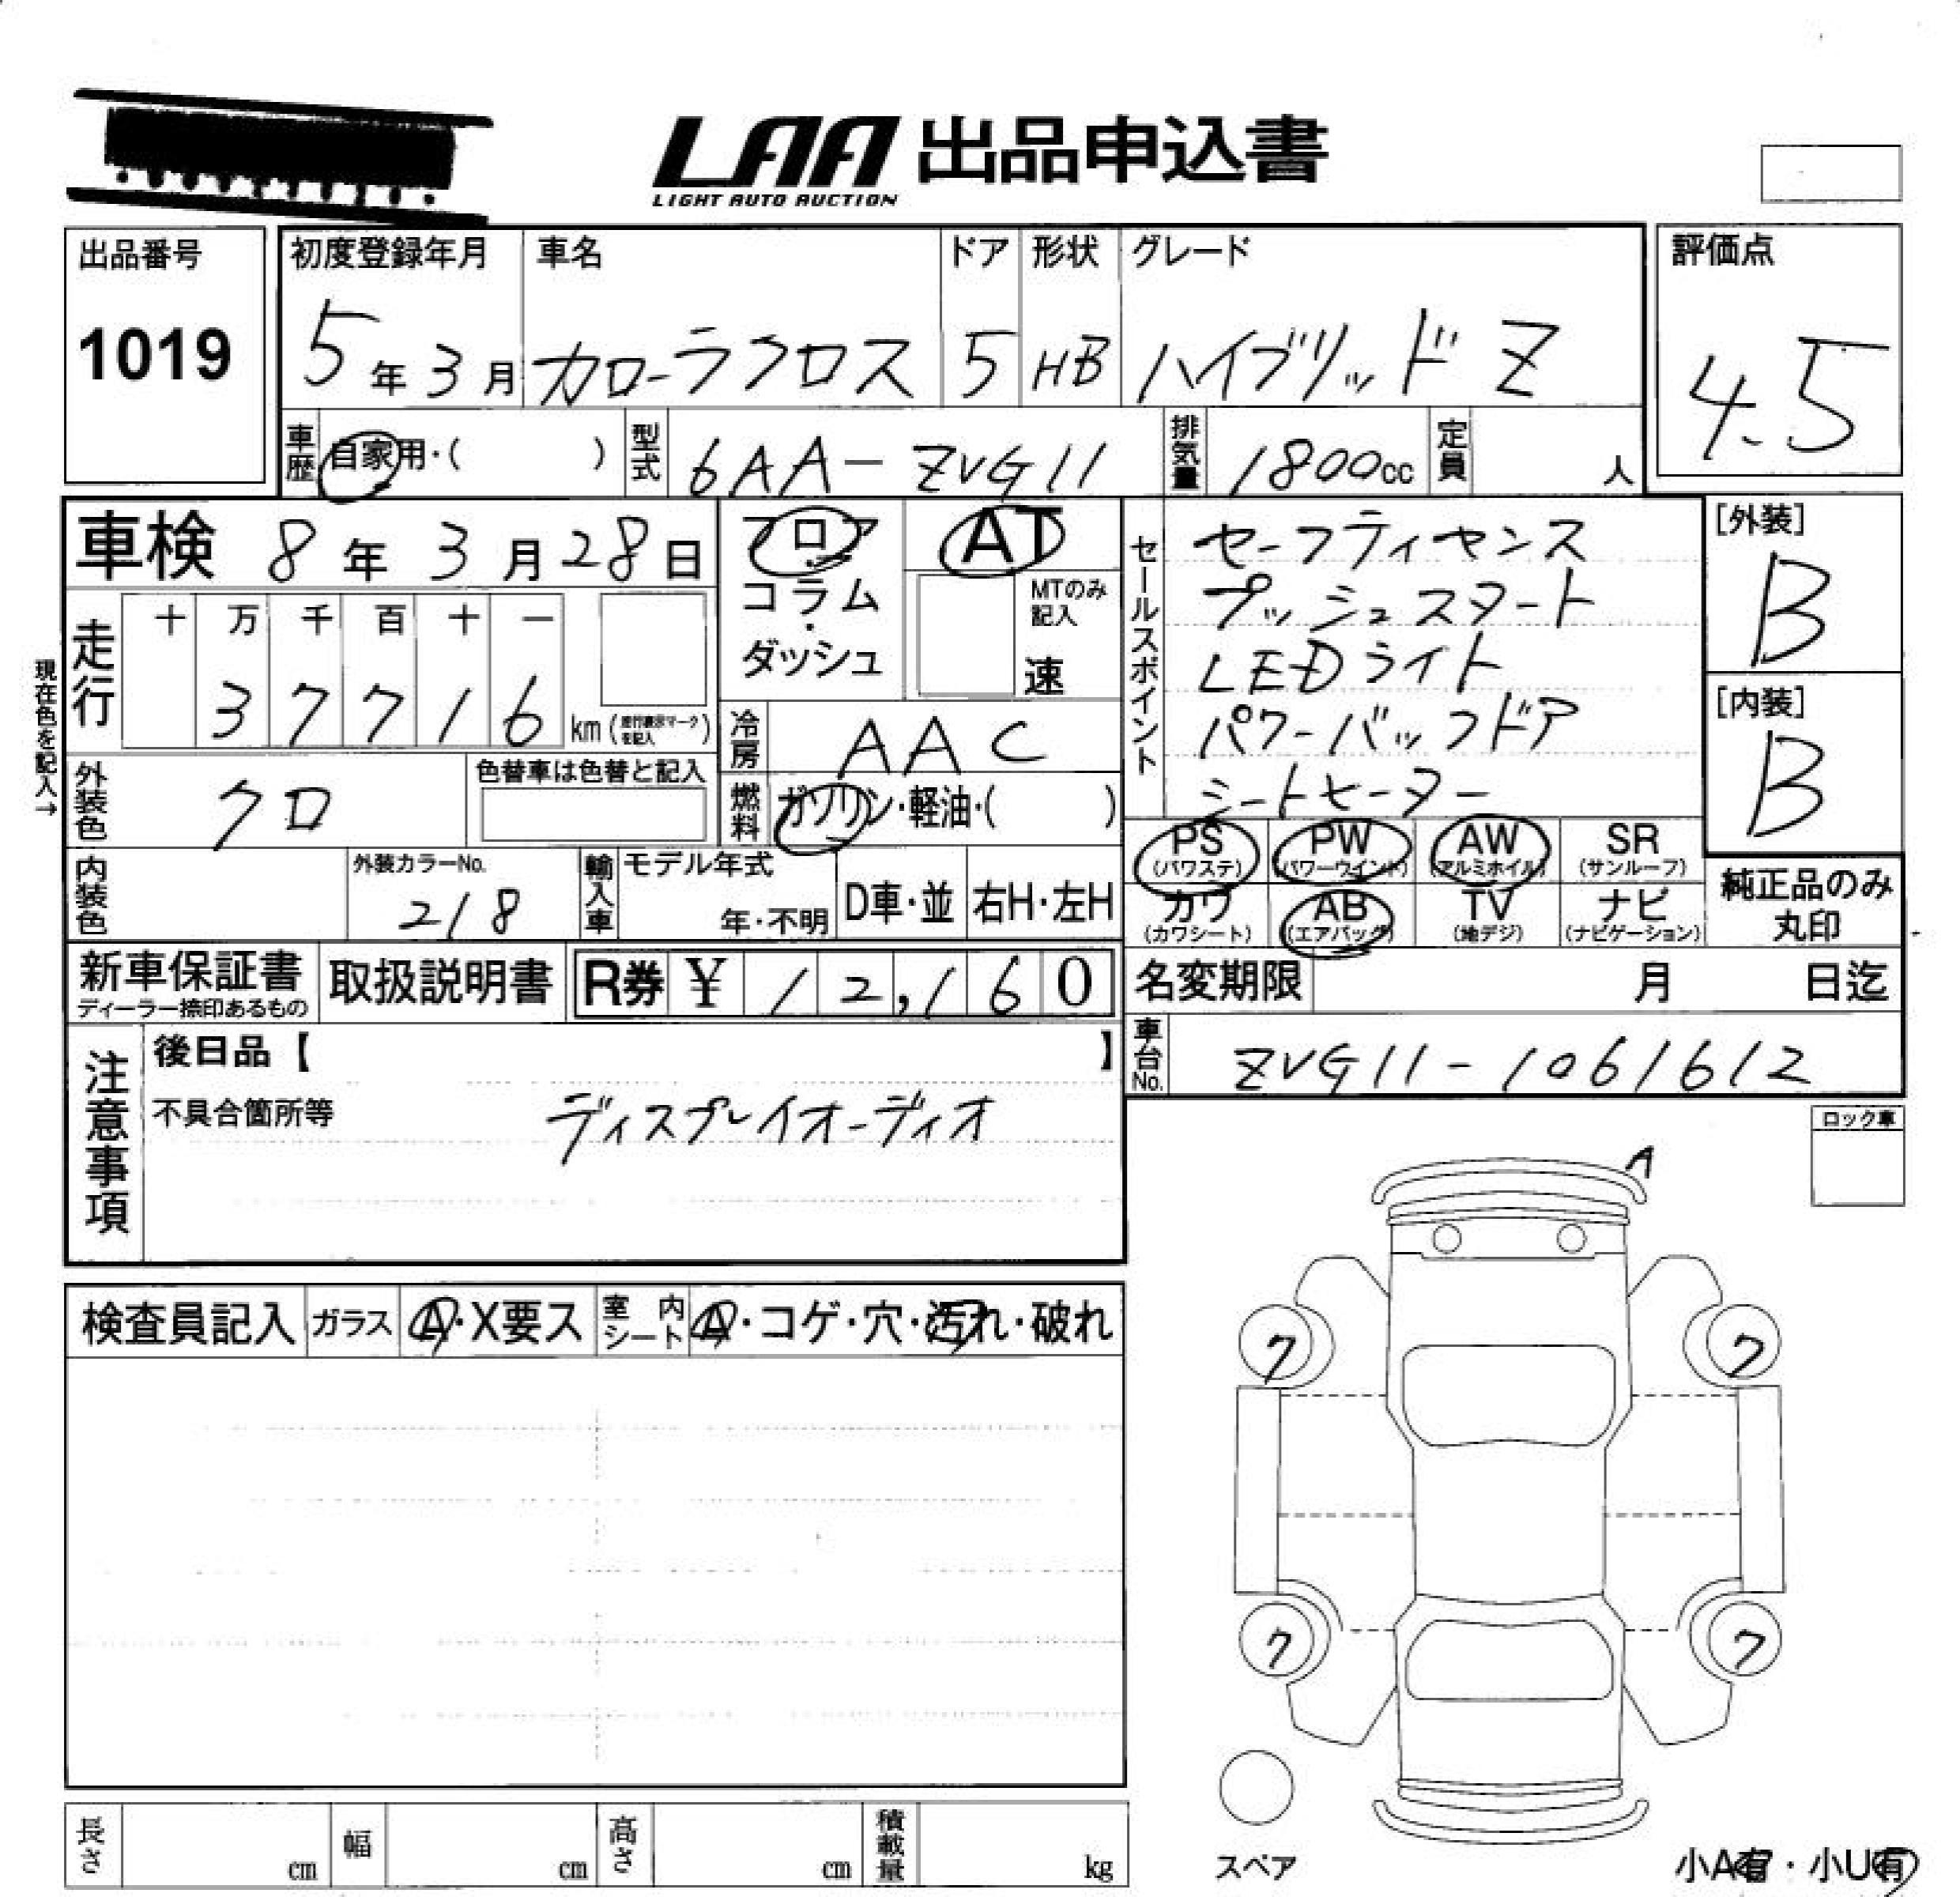 LAA 出品申込書
LIGHT AUTO AUCTION
出品番号
1019
初度登録年月
5年3月
車名
カローラクロス
ドア
5
形状
HB
グレード
ハイブリッド Z
評価点
4.5
車歴
自家用・( )
型式
6AA-ZVG11
排気量
1800cc
定員
人
車検 8年3月28日
現在色を記入→
走行
十 万 千 百 十 一
3 7 7 1 6
km(走行表示マークを記入)
フロア
コラム
・
ダッシュ
AT
MTのみ
記入
速
冷房
AAC
燃料
ガソリン・軽油・( )
外装色
クロ
色替車は色替と記入
内装色
外装カラーNo.
218
輸入車
モデル年式
年・不明
D車・並
右H・左H
セールスポイント
セーフティセンス
プッシュスタート
LEDライト
パワーバックドア
シートヒーター
[外装]
B
[内装]
B
PS
(パワステ)
PW
(パワーウインド)
AW
(アルミホイル)
SR
(サンルーフ)
カワ
(カワシート)
AB
(エアバッグ)
TV
(地デジ)
ナビ
(ナビゲーション)
純正品のみ
丸印
新車保証書
ディーラー捺印あるもの
取扱説明書
R券 ¥ 12,160
名変期限 月 日迄
車台No.
ZVG11-1061612
注意事項
後日品【 】
不具合箇所等
ディスプレイオーディオ
ロック車
A
検査員記入
ガラス
A・X要ス
室内シート
A・コゲ・穴・汚れ・破れ
ク ク
ク ク
スペア
小A有・小U有
長さ cm
幅 cm
高さ cm
積載量 kg